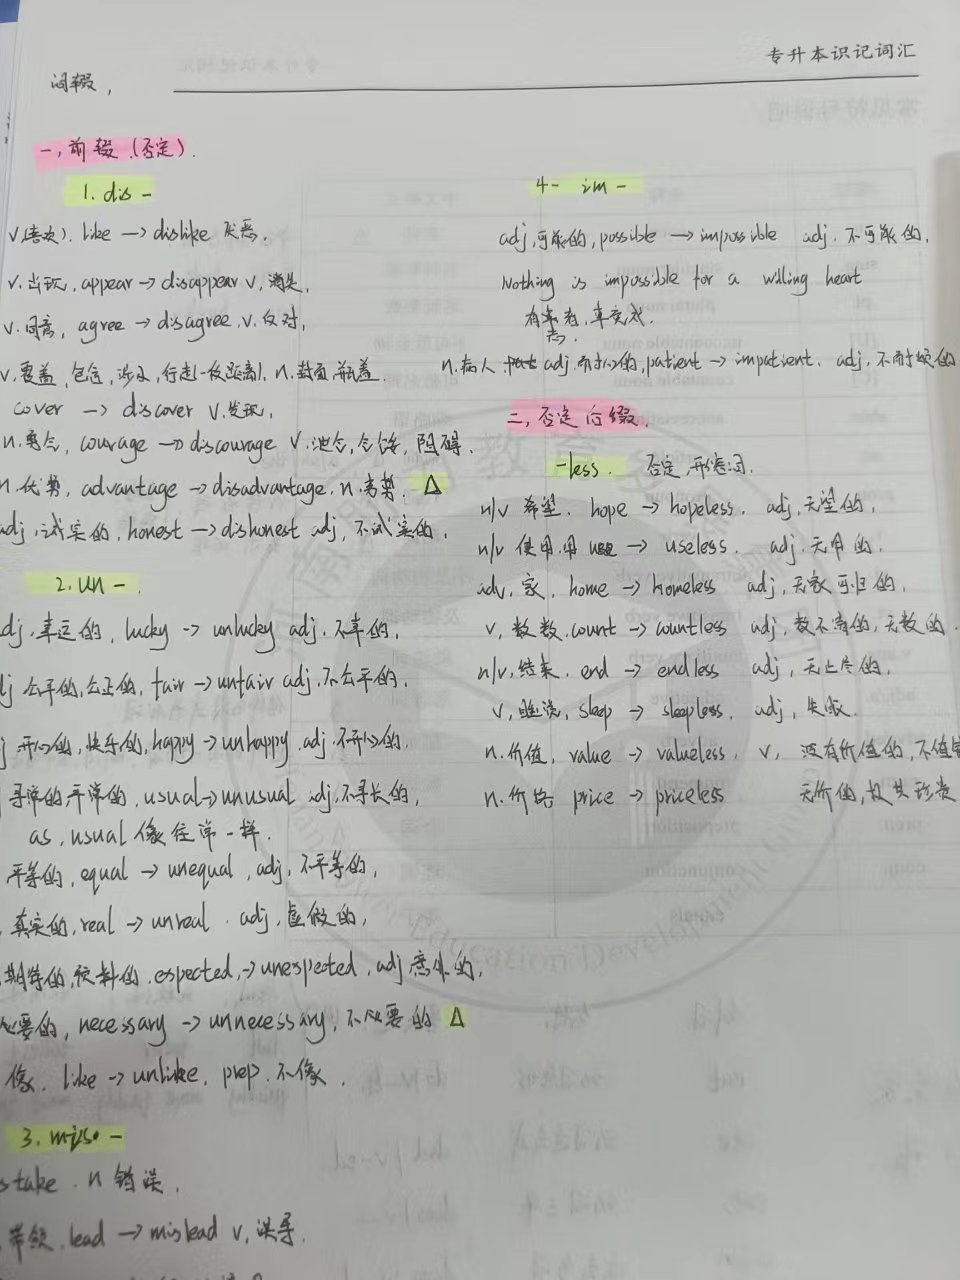 专升本识记词汇
词缀，
一，前缀（否定）.
1. dis -
v(喜欢). like → dislike 厌恶.
v. 出现, appear → disappear v, 消失,
v. 同意, agree → disagree, v. 反对,
v, 覆盖, 包含, 涉及, 行走(一段距离), n. 封面, 瓶盖
cover → discover v. 发现,
n. 勇气, courage → discourage v.
阻碍.
n. 优势, advantage → disadvantage. n. 劣势. Δ
adj, 诚实的, honest → dishonest adj, 不诚实的,
2. un - .
dj. 幸运的, lucky → unlucky adj. 不幸的,
dj 公平的, 公正的, fair → unfair adj. 不公平的,
j 开心的, 快乐的, happy → unhappy. adj. 不开心的.
寻常的 平常的, usual → unusual adj, 不寻长的,
as, usual 像往常一样.
平等的, equal → unequal, adj, 不平等的,
, 真实的, real → unreal . adj, 虚假的,
期待的, 预料的, espected, → unespected, adj 意外的,
必要的, necessary → unnecessary, 不必要的 Δ
像. like → unlike, prep. 不像.
3. mis -
stake . n 错误,
. 带领. lead → mislead v, 误导.
4- im -
adj, 可能的, possible → impossible adj. 不可能的,
Nothing is impossible for a willing heart
有志者, 事竟成.
n. 病人 adj. 耐心的, patient → impatient, adj, 不耐烦的
二, 否定后缀,
-less . 否定, 形容词.
n/v 希望. hope → hopeless. adj, 无望的,
n/v 使用. 用 use → useless. adj. 无用的.
adv, 家, home → homeless adj, 无家可归的,
v, 数数, count → countless adj, 数不清的, 无数的.
n/v, 结束. end → endless adj, 无止尽的,
v, 睡觉, sleep → sleepless. adj, 失眠.
n. 价值, value → valueless. v, 没有价值的, 不值钱
n. 价格 price → priceless 无价的, 极其珍贵